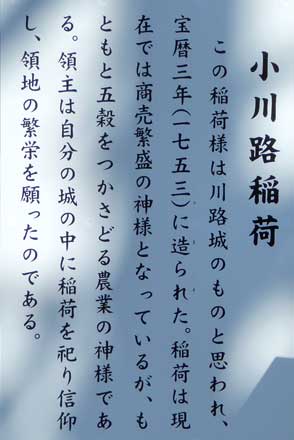 小川路稲荷
この稲荷様は川路城のものと思われ、
宝暦三年(一七五三)に造られた。稲荷は現
在では商売繁盛の神様となっているが、も
ともと五穀をつかさどる農業の神様であ
る。領主は自分の城の中に稲荷を祀り信仰
し、領地の繁栄を願ったのである。